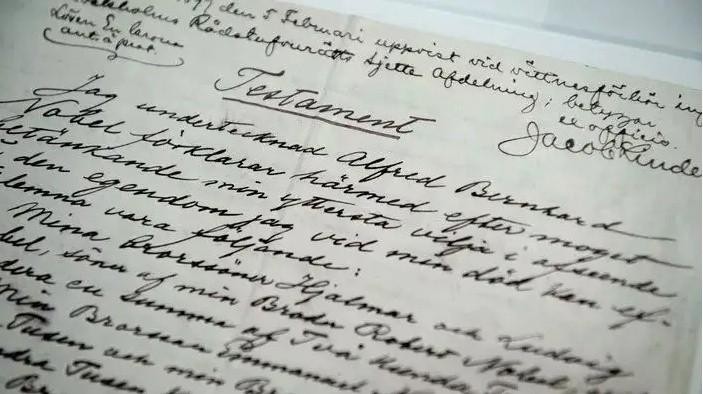 den 5 Februari uppvist vid vittnesförhör inf
Stockholms Rådstufvurätts sjette Afdelning; betygar
ex officio.
Testament
Jag undertecknad Alfred Bernhard
Nobel förklarar härmed efter moget
betänkande min yttersta vilja i afseende
den egendom jag vid min död kan ef-
lemna vara följande:
Mina Brorssöner Hjalmar och Ludvig
bel, söner af min Broder Robert Nobel
en Summa af Två Hundra
Min Brorson Emmanuel
Tusen och min
Tusen